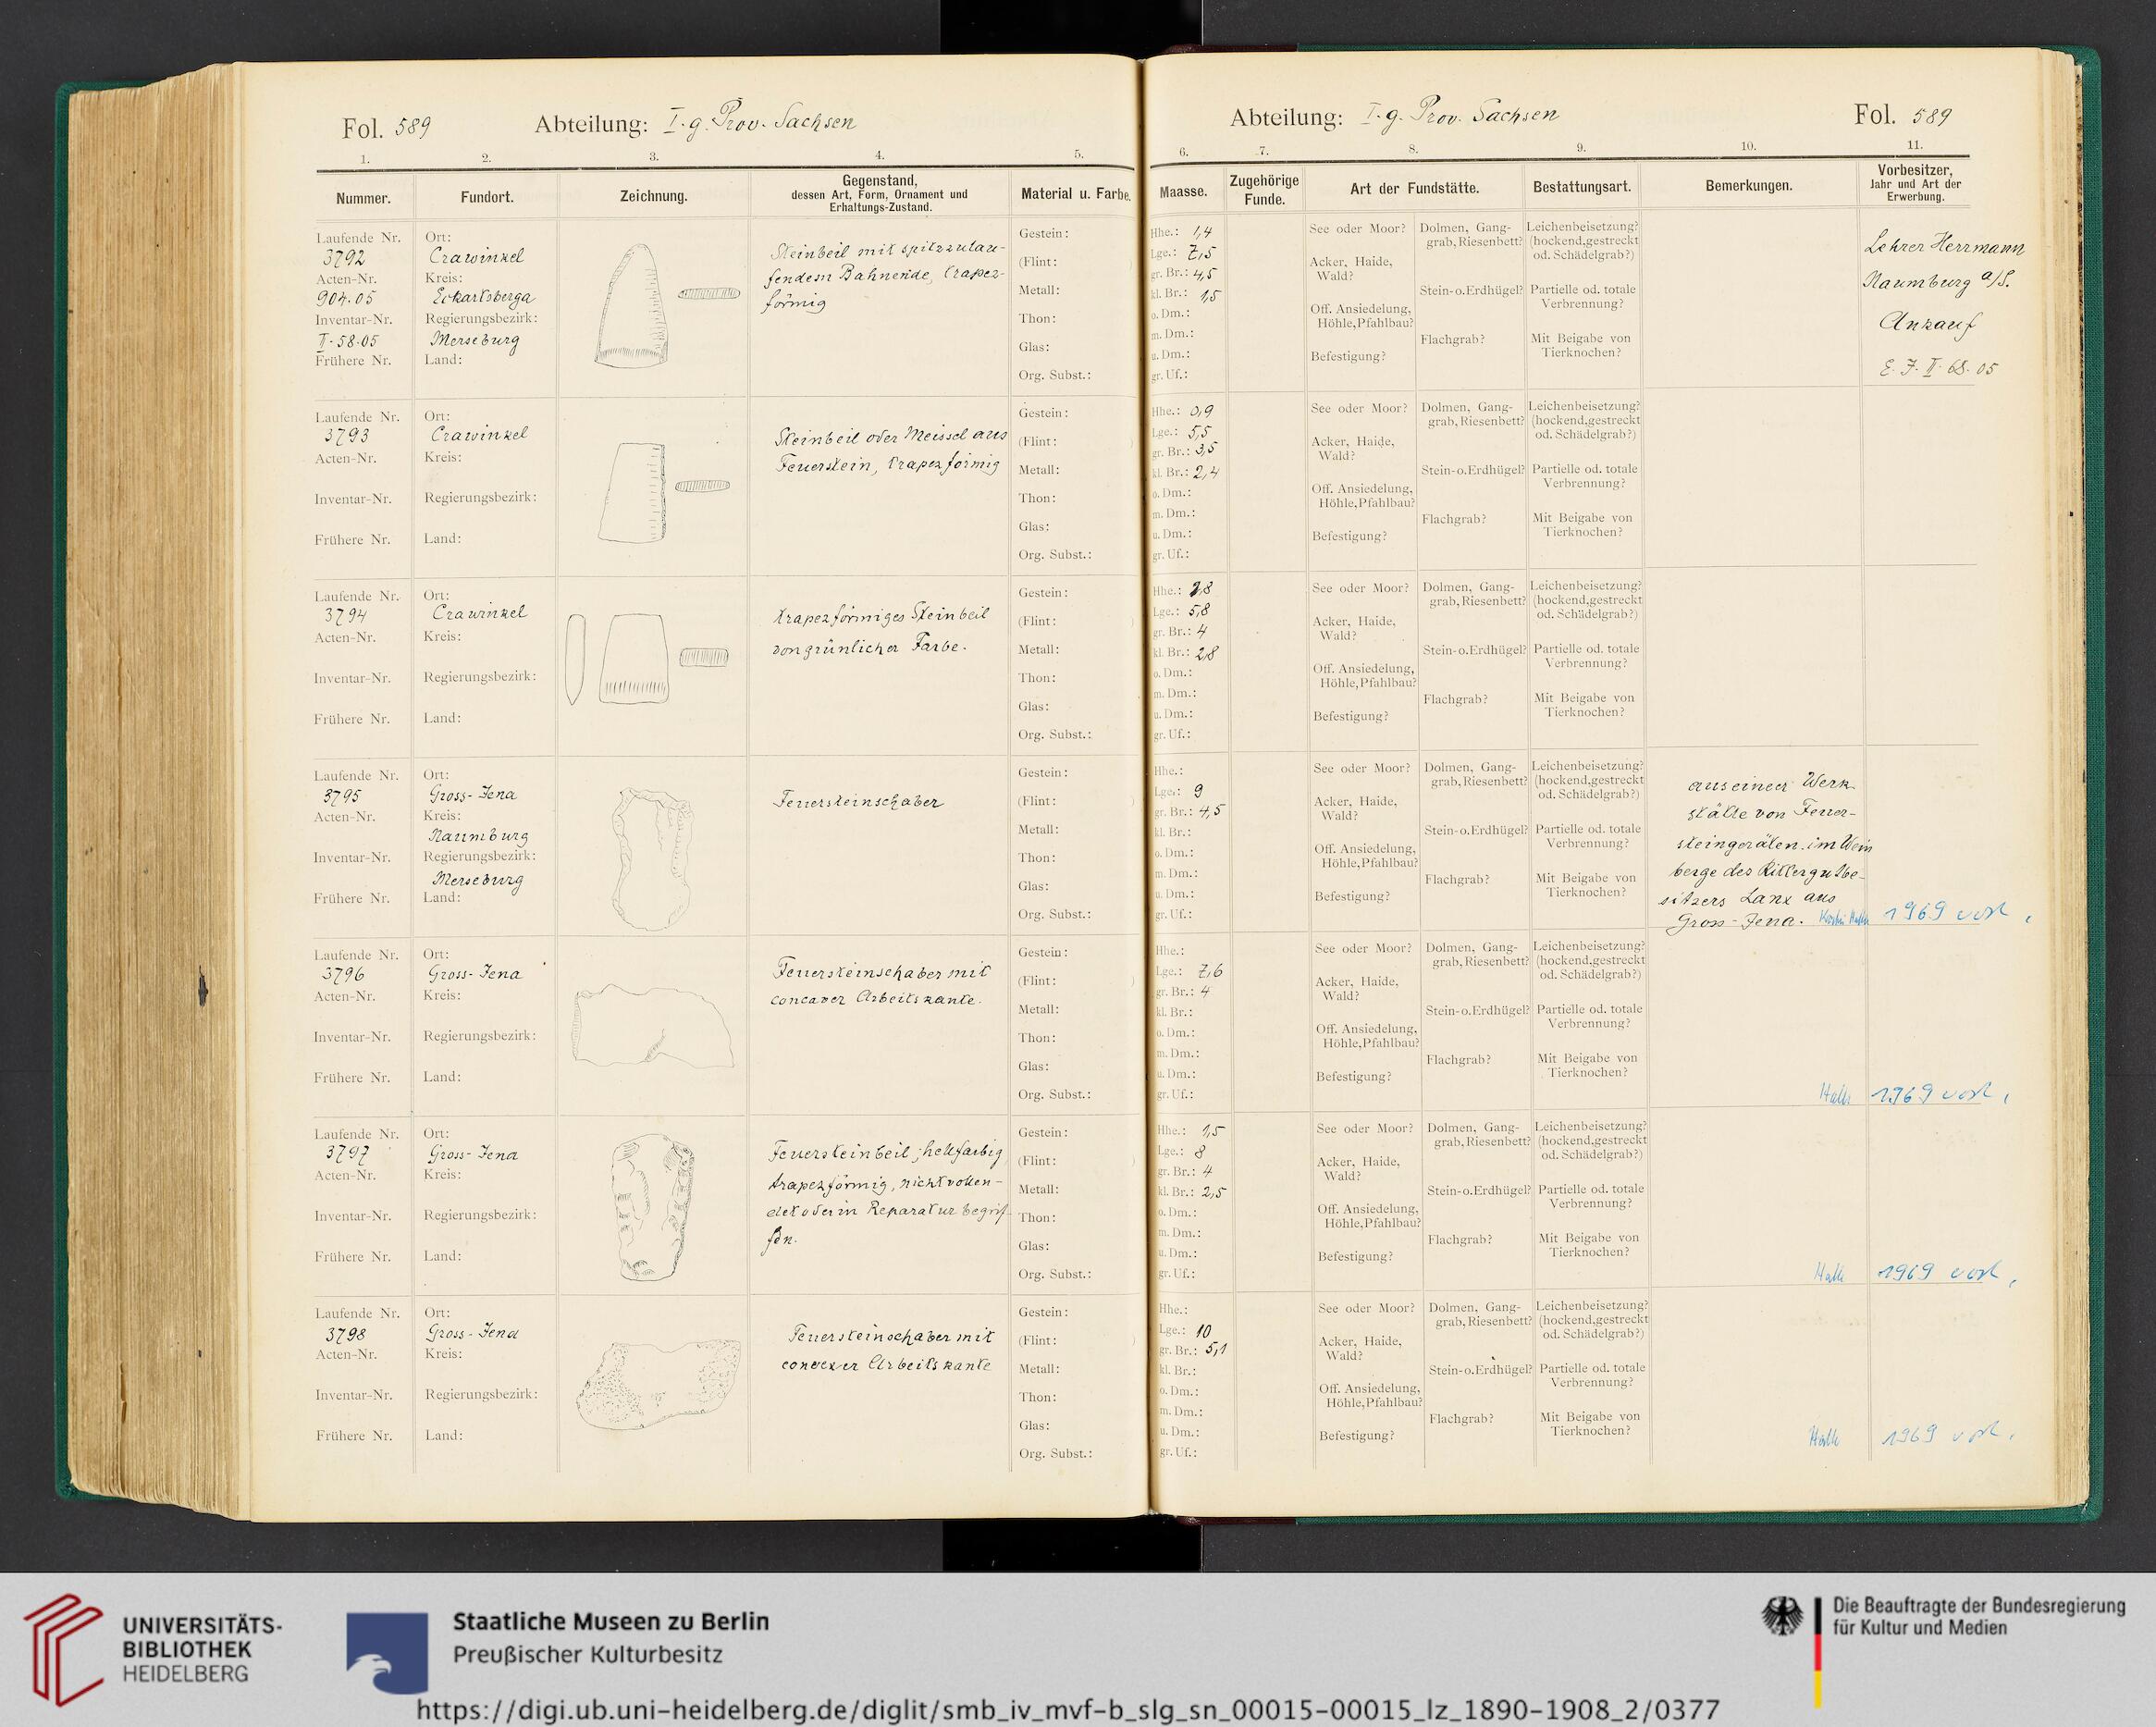 Fol. 589 Abteilung: I.g. Prov. Sachsen
1. 2. 3. 4. 5.
Nummer. Fundort. Zeichnung. Gegenstand, dessen Art, Form, Ornament und Erhaltungs-Zustand. Material u. Farbe.
Laufende Nr.
3792
Acten-Nr.
904.05
Inventar-Nr.
II.58.05
Frühere Nr.
Ort:
Crawinkel
Kreis:
Eckartsberga
Regierungsbezirk:
Merseburg
Land:
Steinbeil mit spitzzulau-
fendem Bahnende, trapez-
förmig
Gestein:
(Flint: )
Metall:
Thon:
Glas:
Org. Subst.:
Laufende Nr.
3793
Acten-Nr.
Inventar-Nr.
Frühere Nr.
Ort:
Crawinkel
Kreis:
Regierungsbezirk:
Land:
Steinbeil oder Meissel aus
Feuerstein, trapezförmig
Gestein:
(Flint: )
Metall:
Thon:
Glas:
Org. Subst.:
Laufende Nr.
3794
Acten-Nr.
Inventar-Nr.
Frühere Nr.
Ort:
Crawinkel
Kreis:
Regierungsbezirk:
Land:
trapezförmiges Steinbeil
von grünlicher Farbe.
Gestein:
(Flint: )
Metall:
Thon:
Glas:
Org. Subst.:
Laufende Nr.
3795
Acten-Nr.
Inventar-Nr.
Frühere Nr.
Ort:
Gross-Jena
Kreis:
Naumburg
Regierungsbezirk:
Merseburg
Land:
Feuersteinschaber
Gestein:
(Flint: )
Metall:
Thon:
Glas:
Org. Subst.:
Laufende Nr.
3796
Acten-Nr.
Inventar-Nr.
Frühere Nr.
Ort:
Gross-Jena
Kreis:
Regierungsbezirk:
Land:
Feuersteinschaber mit
concaver Arbeitskante.
Gestein:
(Flint: )
Metall:
Thon:
Glas:
Org. Subst.:
Laufende Nr.
3797
Acten-Nr.
Inventar-Nr.
Frühere Nr.
Ort:
Gross-Jena
Kreis:
Regierungsbezirk:
Land:
Feuersteinbeil; hellfarbig
trapezförmig, nicht vollen-
det oder in Reparatur begrif-
fen.
Gestein:
(Flint: )
Metall:
Thon:
Glas:
Org. Subst.:
Laufende Nr.
3798
Acten-Nr.
Inventar-Nr.
Frühere Nr.
Ort:
Gross-Jena
Kreis:
Regierungsbezirk:
Land:
Feuersteinschaber mit
convexer Arbeitskante
Gestein:
(Flint: )
Metall:
Thon:
Glas:
Org. Subst.:
Abteilung: I.g. Prov. Sachsen Fol. 589
6. 7. 8. 9. 10. 11.
Maasse. Zugehörige Funde. Art der Fundstätte. Bestattungsart. Bemerkungen. Vorbesitzer, Jahr und Art der Erwerbung.
Hhe.: 1,4
Lge.: 7,5
gr. Br.: 4,5
kl. Br.: 1,5
o. Dm.:
m. Dm.:
u. Dm.:
gr. Uf.:
See oder Moor?
Acker, Haide,
Wald?
Off. Ansiedelung,
Höhle, Pfahlbau?
Befestigung?
Dolmen, Gang-
grab, Riesenbett?
Stein-o. Erdhügel?
Flachgrab?
Leichenbeisetzung?
(hockend, gestreckt
od. Schädelgrab?)
Partielle od. totale
Verbrennung?
Mit Beigabe von
Tierknochen?
Lehrer Herrmann
Naumburg a/S.
Ankauf
E.J. II.68.05
Hhe.: 0,9
Lge.: 5,5
gr. Br.: 3,5
kl. Br.: 2,4
o. Dm.:
m. Dm.:
u. Dm.:
gr. Uf.:
See oder Moor?
Acker, Haide,
Wald?
Off. Ansiedelung,
Höhle, Pfahlbau?
Befestigung?
Dolmen, Gang-
grab, Riesenbett?
Stein-o. Erdhügel?
Flachgrab?
Leichenbeisetzung?
(hockend, gestreckt
od. Schädelgrab?)
Partielle od. totale
Verbrennung?
Mit Beigabe von
Tierknochen?
Hhe.:
Lge.: 5,8
gr. Br.: 4
kl. Br.: 2,8
o. Dm.:
m. Dm.:
u. Dm.:
gr. Uf.:
See oder Moor?
Acker, Haide,
Wald?
Off. Ansiedelung,
Höhle, Pfahlbau?
Befestigung?
Dolmen, Gang-
grab, Riesenbett?
Stein-o. Erdhügel?
Flachgrab?
Leichenbeisetzung?
(hockend, gestreckt
od. Schädelgrab?)
Partielle od. totale
Verbrennung?
Mit Beigabe von
Tierknochen?
Hhe.:
Lge.: 9
gr. Br.: 4,5
kl. Br.:
o. Dm.:
m. Dm.:
u. Dm.:
gr. Uf.:
See oder Moor?
Acker, Haide,
Wald?
Off. Ansiedelung,
Höhle, Pfahlbau?
Befestigung?
Dolmen, Gang-
grab, Riesenbett?
Stein-o. Erdhügel?
Flachgrab?
Leichenbeisetzung?
(hockend, gestreckt
od. Schädelgrab?)
Partielle od. totale
Verbrennung?
Mit Beigabe von
Tierknochen?
aus einer Werk
stätte von Feuer-
steingeräten im Wein
berge des Rittergutbe-
sitzers Lanx aus
Gross-Jena. 1969 vorh.
Hhe.:
Lge.: 7,6
gr. Br.: 4
kl. Br.:
o. Dm.:
m. Dm.:
u. Dm.:
gr. Uf.:
See oder Moor?
Acker, Haide,
Wald?
Off. Ansiedelung,
Höhle, Pfahlbau?
Befestigung?
Dolmen, Gang-
grab, Riesenbett?
Stein-o. Erdhügel?
Flachgrab?
Leichenbeisetzung?
(hockend, gestreckt
od. Schädelgrab?)
Partielle od. totale
Verbrennung?
Mit Beigabe von
Tierknochen?
Halle 1969 vorh.
Hhe.: 1,5
Lge.: 8
gr. Br.: 4
kl. Br.: 2,5
o. Dm.:
m. Dm.:
u. Dm.:
gr. Uf.:
See oder Moor?
Acker, Haide,
Wald?
Off. Ansiedelung,
Höhle, Pfahlbau?
Befestigung?
Dolmen, Gang-
grab, Riesenbett?
Stein-o. Erdhügel?
Flachgrab?
Leichenbeisetzung?
(hockend, gestreckt
od. Schädelgrab?)
Partielle od. totale
Verbrennung?
Mit Beigabe von
Tierknochen?
Halle 1969 vorh.
Hhe.:
Lge.: 10
gr. Br.: 5,1
kl. Br.:
o. Dm.:
m. Dm.:
u. Dm.:
gr. Uf.:
See oder Moor?
Acker, Haide,
Wald?
Off. Ansiedelung,
Höhle, Pfahlbau?
Befestigung?
Dolmen, Gang-
grab, Riesenbett?
Stein-o. Erdhügel?
Flachgrab?
Leichenbeisetzung?
(hockend, gestreckt
od. Schädelgrab?)
Partielle od. totale
Verbrennung?
Mit Beigabe von
Tierknochen?
Halle 1969 vorh.
UNIVERSITÄTS-
BIBLIOTHEK
HEIDELBERG
Staatliche Museen zu Berlin
Preußischer Kulturbesitz
Die Beauftragte der Bundesregierung
für Kultur und Medien
https://digi.ub.uni-heidelberg.de/diglit/smb_iv_mvf-b_slg_sn_00015-00015_lz_1890-1908_2/0377